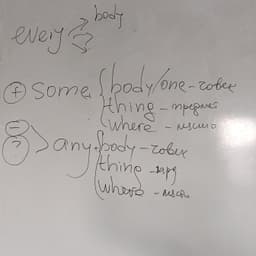 every body
+ some body/one - човек
thing - предмет
where - място
- ? any body - човек
thing - пред
where - място